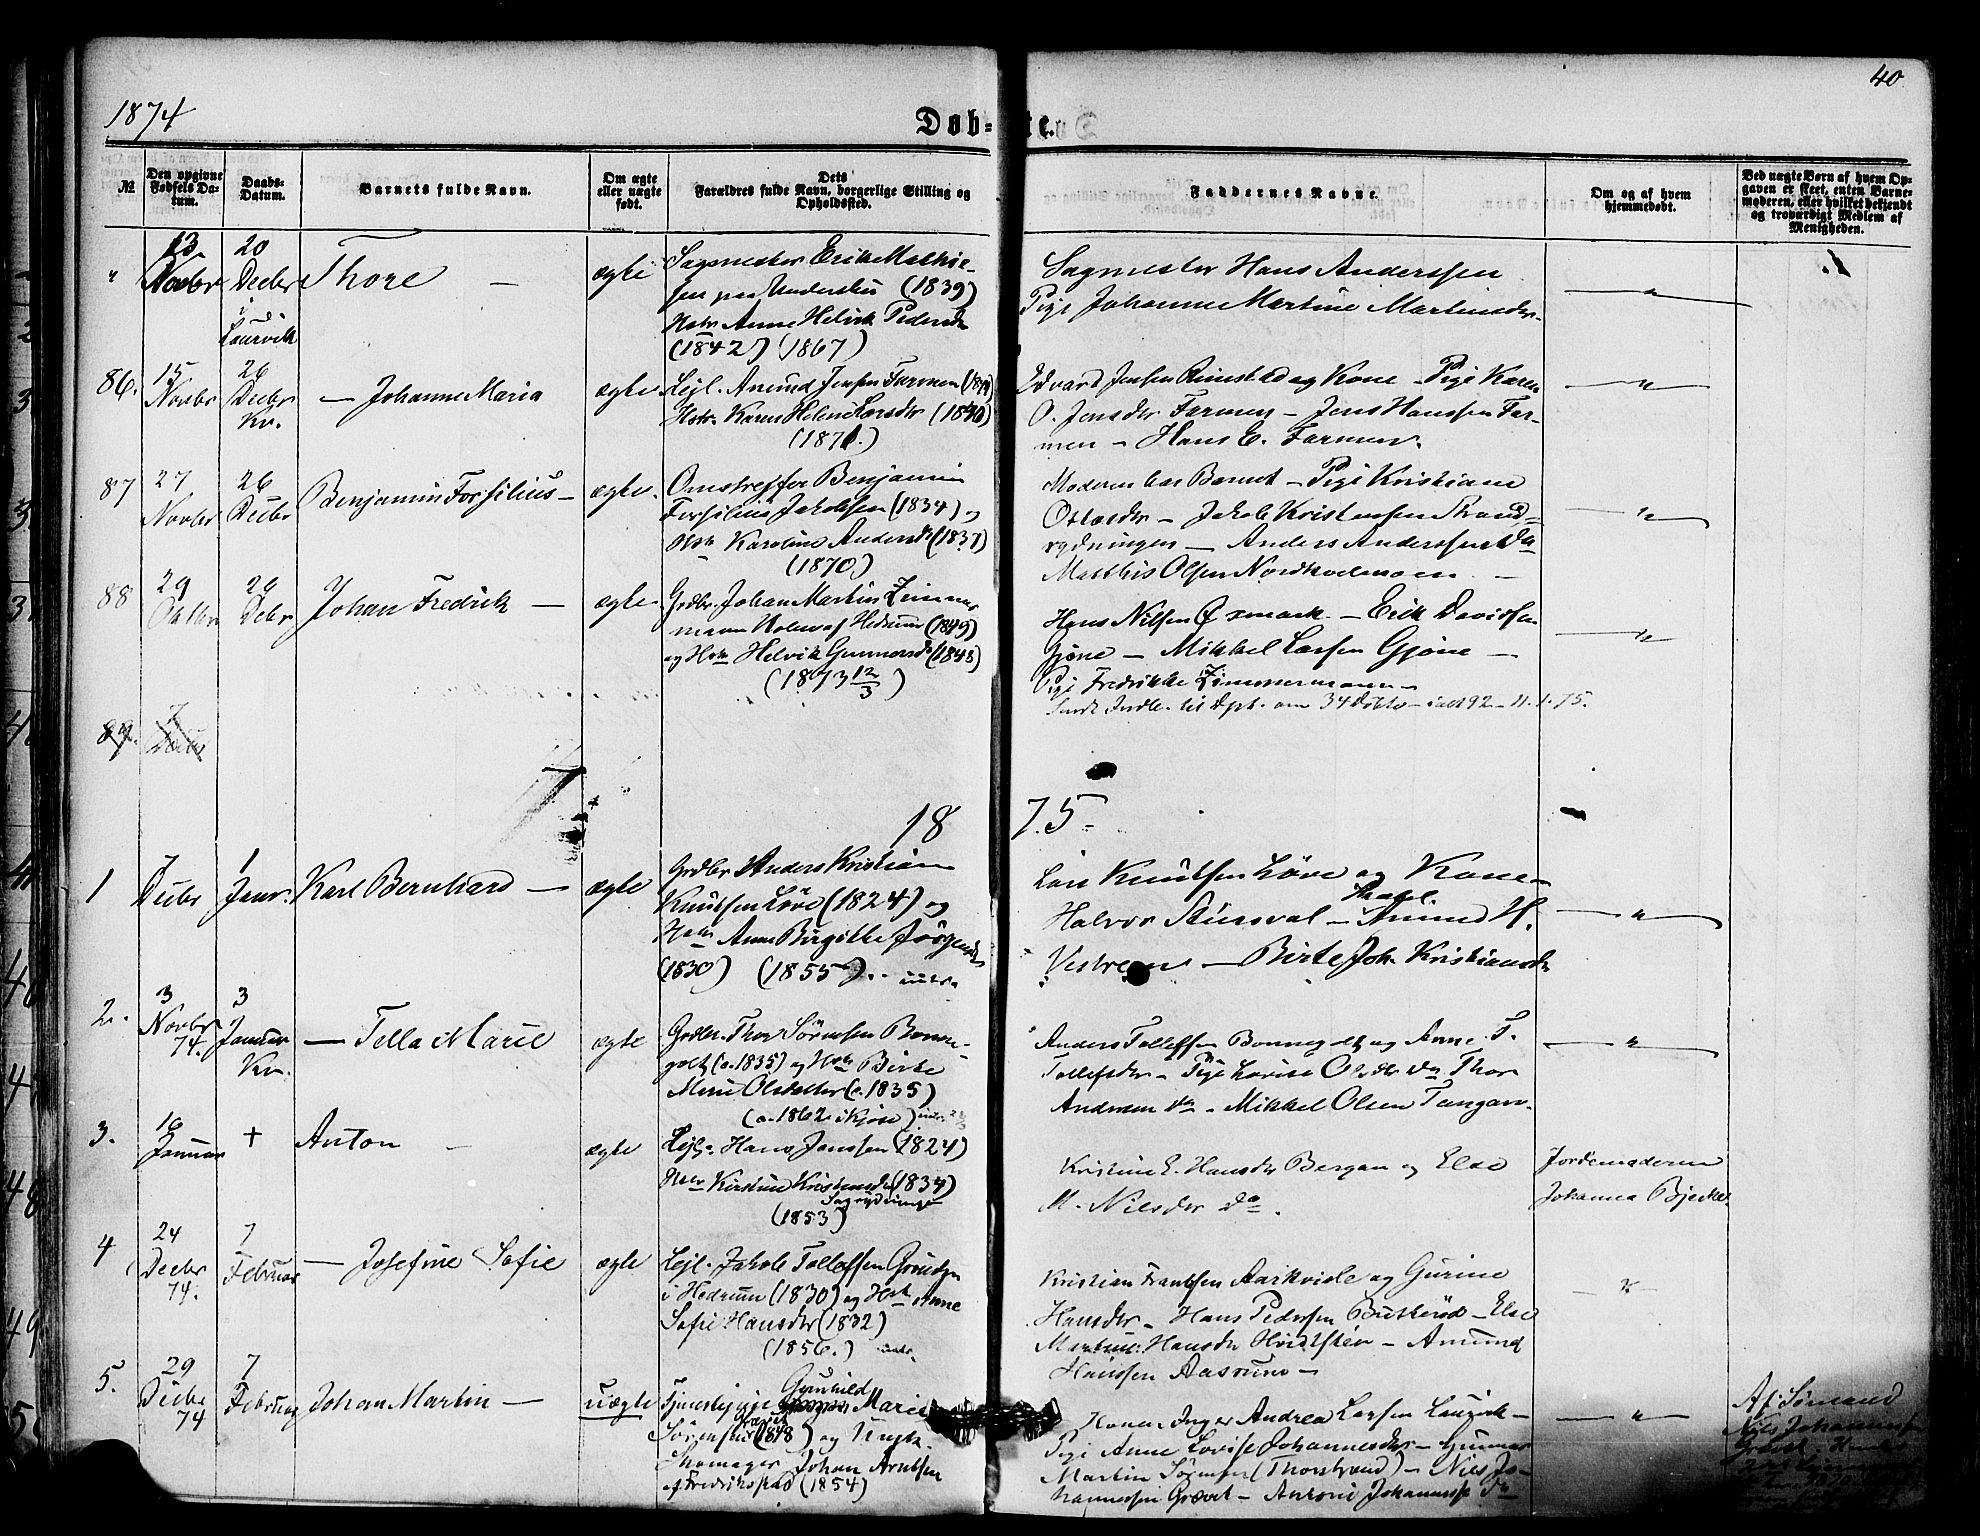 1874
40
Døb-
te.
№
Den opgivne Fødsels Datum.
Daabs-Datum.
Barnets fulde Navn.
Om ægte eller uægte født.
Dets Forældres fulde Navn, borgerlige Stilling og Opholdssted.
Faddernes Navne.
Om og af hvem hjemmedøbt.
Ved uægte Børn af hvem Opgaven er skeet, enten Barnemoderen, eller hvilket bekjendt og troværdigt Medlem af Menigheden.
13 Novbr
20 Decbr i Laurvik
Thore —
ægte
Sagmester Erik Mathie-
sen (1839)
Hstr Anne Helvik Pedersdr
(1842) (1867)
Sagmester Hans Anderssen
Pige Johanne Martine Martinsdr.
86.
15 Novbr
26 Decbr Kv.
— Johanne Maria
ægte
Lejl. Amund Jensen Farmen
Hstr. Karen Helene Larsdr
(1871.)
Edvard Jensen Rimstad og Kone — Pige Karen
O. Jensdr Farmen — Jens Hanssen Far-
men — Hans E. Farmen.
87
27 Novbr
26 Decbr
Benjamin Forsilius —
ægte.
Omstreifer Benjamin
Forsilius Jakobsen (1834) og
Hstr Karoline Andersdr (1837)
(1870)
Moderen bar Barnet — Pige Kristiane
Ottesdr — Jakob Kristensen Strand-
rydningen — Anders Anderssen Do
Matthis Olsen —
88
29 Oktbr
26 Decbr
Johan Fredrik —
ægte
Grdbr. Johan Martin Zimmer
mann Holen af Hedrum (1849)
og Hstr Helvik Gunnersdr (1843)
(1873 12/3)
Hans Nilsen Oxmark — Erik Davidsen
Gjøne — Mikkel Larsen Gjøne —
Pige Fredrikke Zimmermann —
Sendt Indb. til Dpt. om 34 Døbte — 11.1.75.
89.
7 Decbr
18
75.
1
7 Decbr
1 Janr.
Karl Bernhard —
ægte
Grdbr Anders Kristian
Knutsen Løve (1824) og
Hstr Anne Birgitte Jørgensdr
(1830) (1855)
Lars Knutsen Løve og Kone —
Halvor Amund H.
Vestreem — Birte Joh. Kristiansdr
2.
3 Novbr 74.
3 Januar Kv.
— Tella Marie
ægte
Grdbr. Thor Sørensen Bonne-
golt (c. 1835) og Hstr Birte
Marie Olsdatter (c. 1835)
(c. 1862 i Kjose)
Anders Tollefsen Bonnegolt og Anne T.
Tollefsdr — Pige Lovise Olsdr Do Thor
Andersen Do — Mikkel Olsen Tangen.
3.
16 Januar
+
Anton —
ægte
Lejl. Hans Jenssen (1824)
Hstr Kirstine Kristensdr (1834)
Sagrydningen
(1853)
Kristine E. Hansdr Bergan og Else
M. Nilsdr Do.
Jordemoderen
Johanna Bjerke.
4
24 Decbr 74.
7 Februar
— Josefine Sofie
ægte
Lejl. Jakob Tollefsen
i Hedrum (1830) og Hstr Anne
Sofie Hansdr (1832)
(1856.)
Kristian Frantsen Aarkvisle og Gurine
Hansdr — Hans Pedersen — Else
Martine Hansdr — Amund
Hanssen Aasrum —
5.
29 Decbr 74
7 Februar
Johan Martin —
uægte
Tjenestepige Gunhild Marie
Sørensen (1848) og Ungk.
Skomager Johan Arntsen
af Fredrikstad (1854)
Kone Inger Andrea Larsen Laurvik —
Pige Anne Lovise Johannesdr — Gunner
Martin Sørensen (Thorstrand) — Nils Jo-
hannessen Grævet — Antoni Johannessen Do
Af Sømand
Nils Johannessen